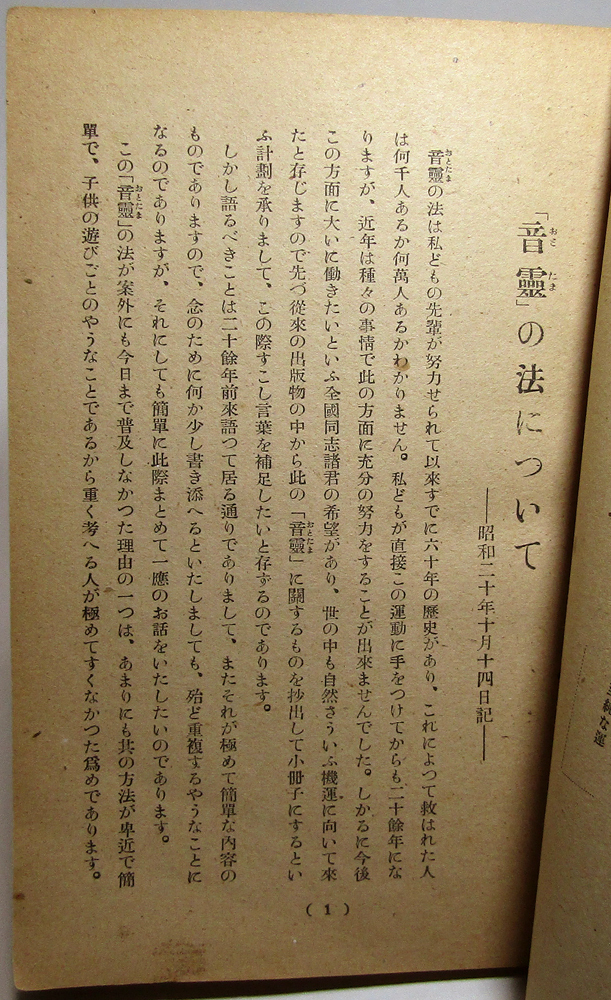 「音靈」の法について
――昭和二十年十月十四日記――
音靈の法は私どもの先輩が努力せられて以來すでに六十年の歷史があり、これによつて救はれた人
は何千人あるか何萬人あるかわかりません。私どもが直接この運動に手をつけてからも二十餘年にな
りますが、近年は種々の事情で此の方面に充分の努力をすることが出來ませんでした。しかるに今後
この方面に大いに働きたいといふ全國同志諸君の希望があり、世の中も自然さういふ機運に向いて來
たと存じますので先づ從來の出版物の中から此の「音靈」に關するものを抄出して小冊子にするとい
ふ計劃を承りまして、この際すこし言葉を補足したいと存ずるのであります。
しかし語るべきことは二十餘年前來語つて居る通りでありまして、またそれが極めて簡單な內容の
ものでありますので、念のために何か少し書き添へるといたしましても、殆ど重複するやうなことに
なるのでありますが、それにしても簡單に此際まとめて一應のお話をいたしたいのであります。
この「音靈」の法が案外にも今日まで普及しなかつた理由の一つは、あまりにも其の方法が卑近で簡
單で、子供の遊びごとのやうなことであるから重く考へる人が極めてすくなかつた爲めであります。
( 1 )